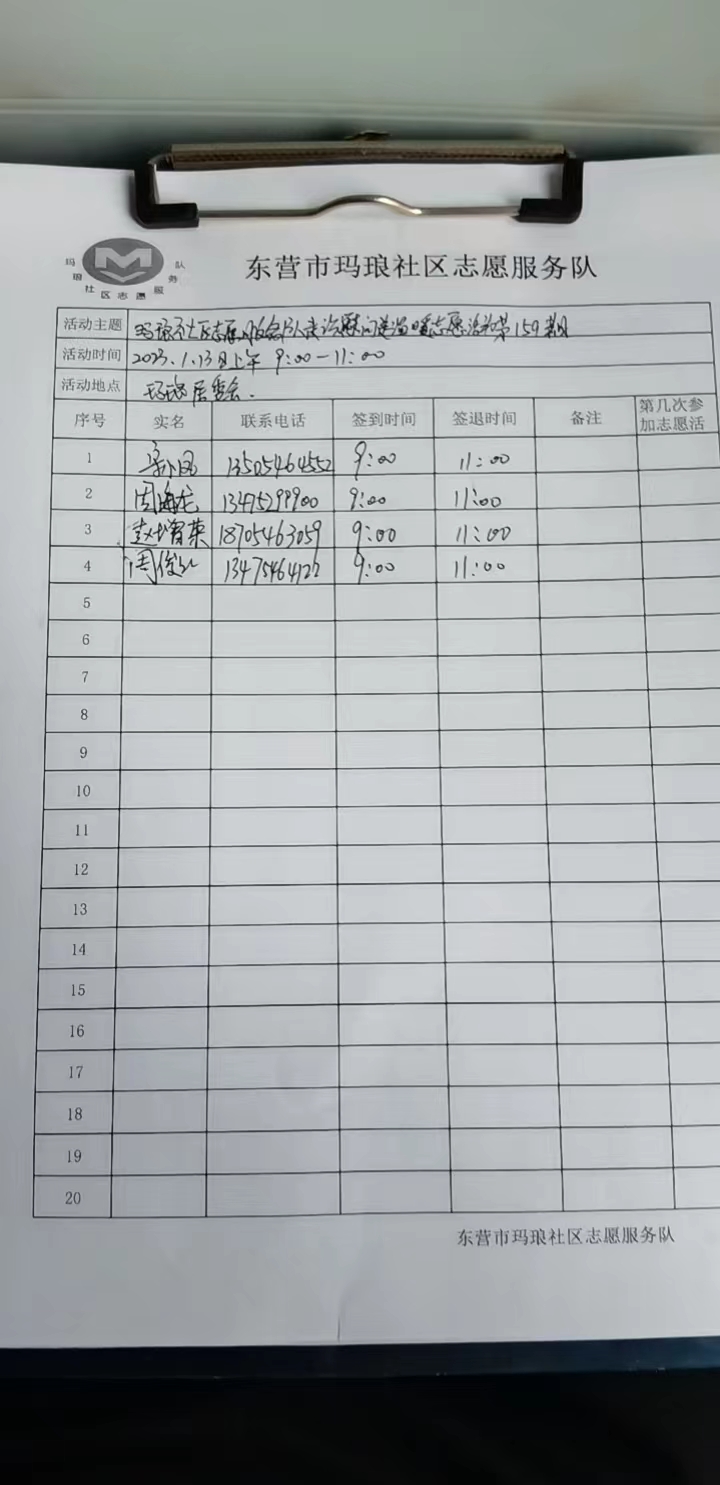 玛琅社区志愿服务队
东营市玛琅社区志愿服务队
活动主题 玛琅社区志愿服务队走访慰问送温暖志愿活动第159期
活动时间 2023.1.13日上午 9:00-11:00
活动地点 玛琅居委会.
序号 实名 联系电话 签到时间 签退时间 备注 第几次参加志愿活
1 13505464552 9:00 11:00
2 周海龙 13475299900 9:00 11:00
3 赵增荣 18705463059 9:00 11:00
4 周俊 13475464122 9:00 11:00
5
6
7
8
9
10
11
12
13
14
15
16
17
18
19
20
东营市玛琅社区志愿服务队